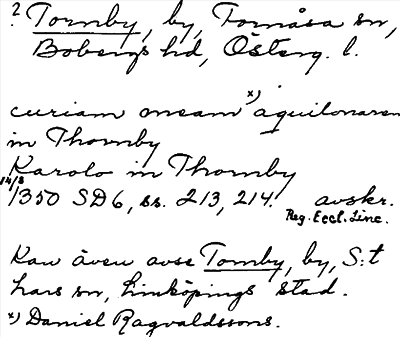 ? Tornby, by, Fornåsa sn,
Bobergs hd, Österg. l.
curiam meam x) aquilonarem
in Thornby
Karolo in Thornby
14/8 1350 SD6, ss. 213, 214. avskr.
Reg. Eccl. Linc.
Kan även avse Tornby, by, S:t
Lars sn, Linköpings stad.
x) Daniel Ragvaldssons.